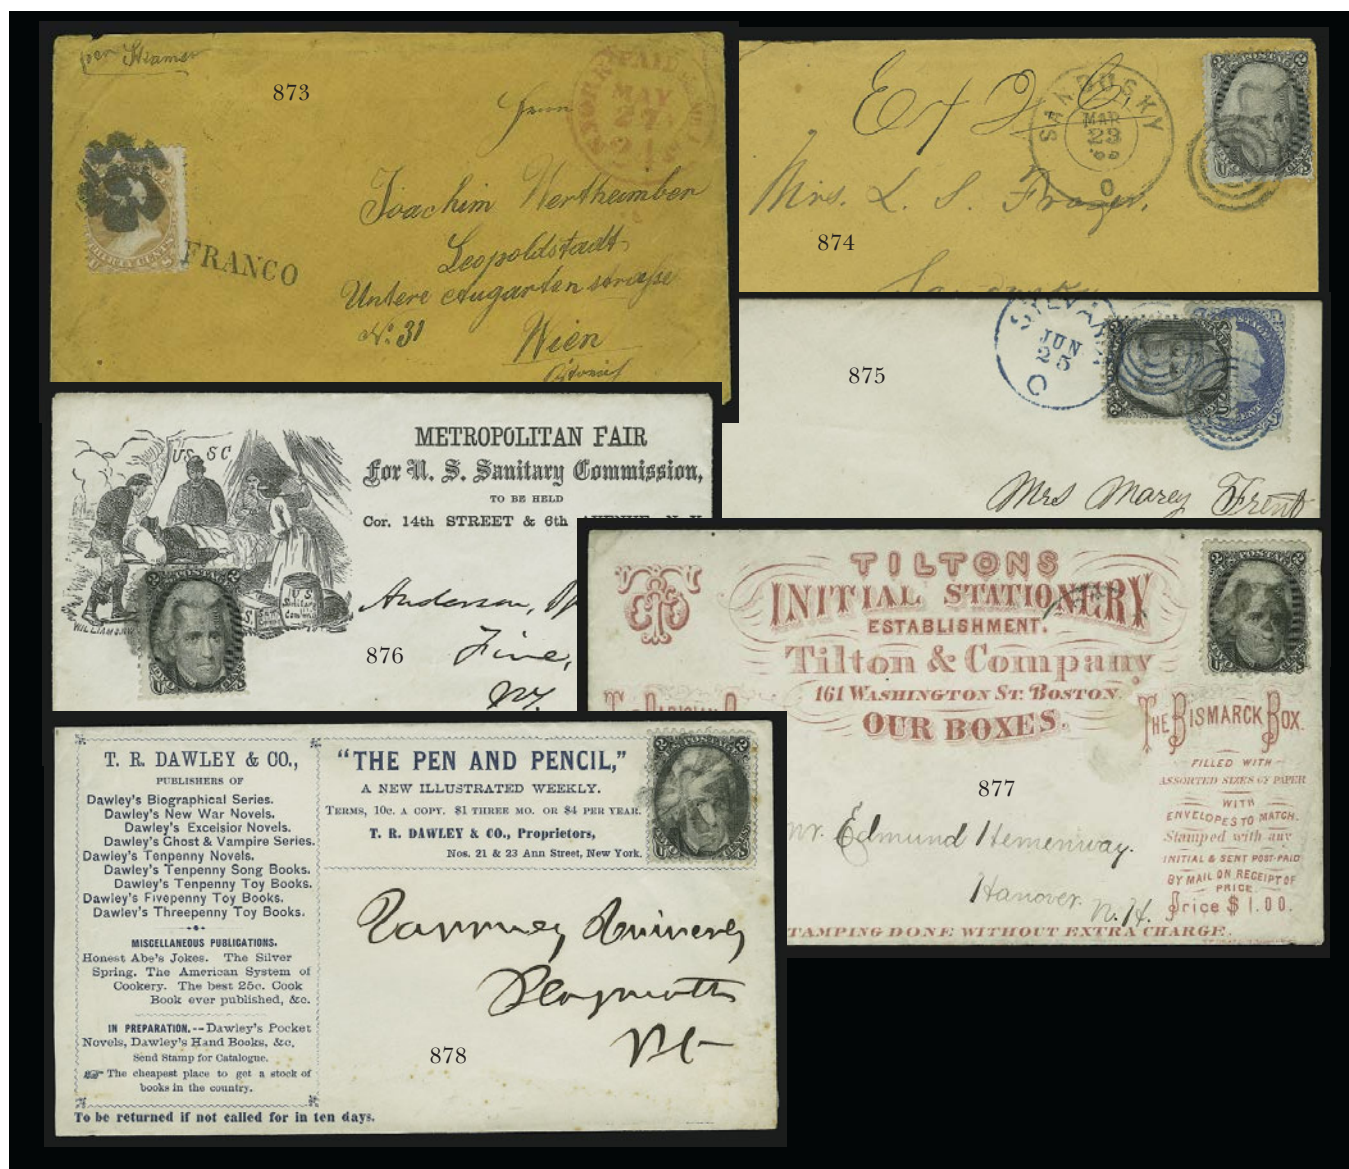 per Steamer
873
NEW YORK PAID ALL
MAY
27
24
Herrn
Joachim Wertheimber
Leopoldstadt
Untere Augarten strasse
No. 31
Wien
THIRTY CENTS
FRANCO
SANDUSKY
MAR
23
O
Mrs. L. S. Frazer,
874
Sandusky
2 POSTAGE 2
SYLVANIA
JUN
25
O
875
Mrs Marey
METROPOLITAN FAIR
For U. S. Sanitary Commission,
TO BE HELD
Cor. 14th STREET & 6th AVENUE, N. Y.
U.S. S C
U S
Sanitary
WILLIAM
2 POSTAGE 2
Anderson,
Fine,
NY.
876
TILTONS
INITIAL STATIONERY
ESTABLISHMENT.
Tilton & Company
161 WASHINGTON ST. BOSTON.
OUR BOXES.
THE BISMARCK BOX.
FILLED WITH
ASSORTED SIZES OF PAPER
WITH
ENVELOPES TO MATCH.
Stamped with any
INITIAL & SENT POST-PAID
BY MAIL ON RECEIPT OF
PRICE.
Price $1.00.
877
Mr. Edmund Hemenway.
Hanover.
N. H.
STAMPING DONE WITHOUT EXTRA CHARGE.
T. R. DAWLEY & CO.,
PUBLISHERS OF
Dawley's Biographical Series.
Dawley's New War Novels.
Dawley's Excelsior Novels.
Dawley's Ghost & Vampire Series.
Dawley's Tenpenny Novels.
Dawley's Tenpenny Song Books.
Dawley's Tenpenny Toy Books.
Dawley's Fivepenny Toy Books.
Dawley's Threepenny Toy Books.
MISCELLANEOUS PUBLICATIONS.
Honest Abe's Jokes. The Silver
Spring. The American System of
Cookery. The best 25c. Cook
Book ever published, &c.
IN PREPARATION.--Dawley's Pocket
Novels, Dawley's Hand Books, &c.
Send Stamp for Catalogue.
The cheapest place to get a stock of
books in the country.
To be returned if not called for in ten days.
"THE PEN AND PENCIL,"
A NEW ILLUSTRATED WEEKLY.
TERMS, 10c. A COPY. $1 THREE MO. OR $4 PER YEAR.
T. R. DAWLEY & CO., Proprietors,
Nos. 21 & 23 Ann Street, New York.
2 POSTAGE 2
Playmouth
Vt
878